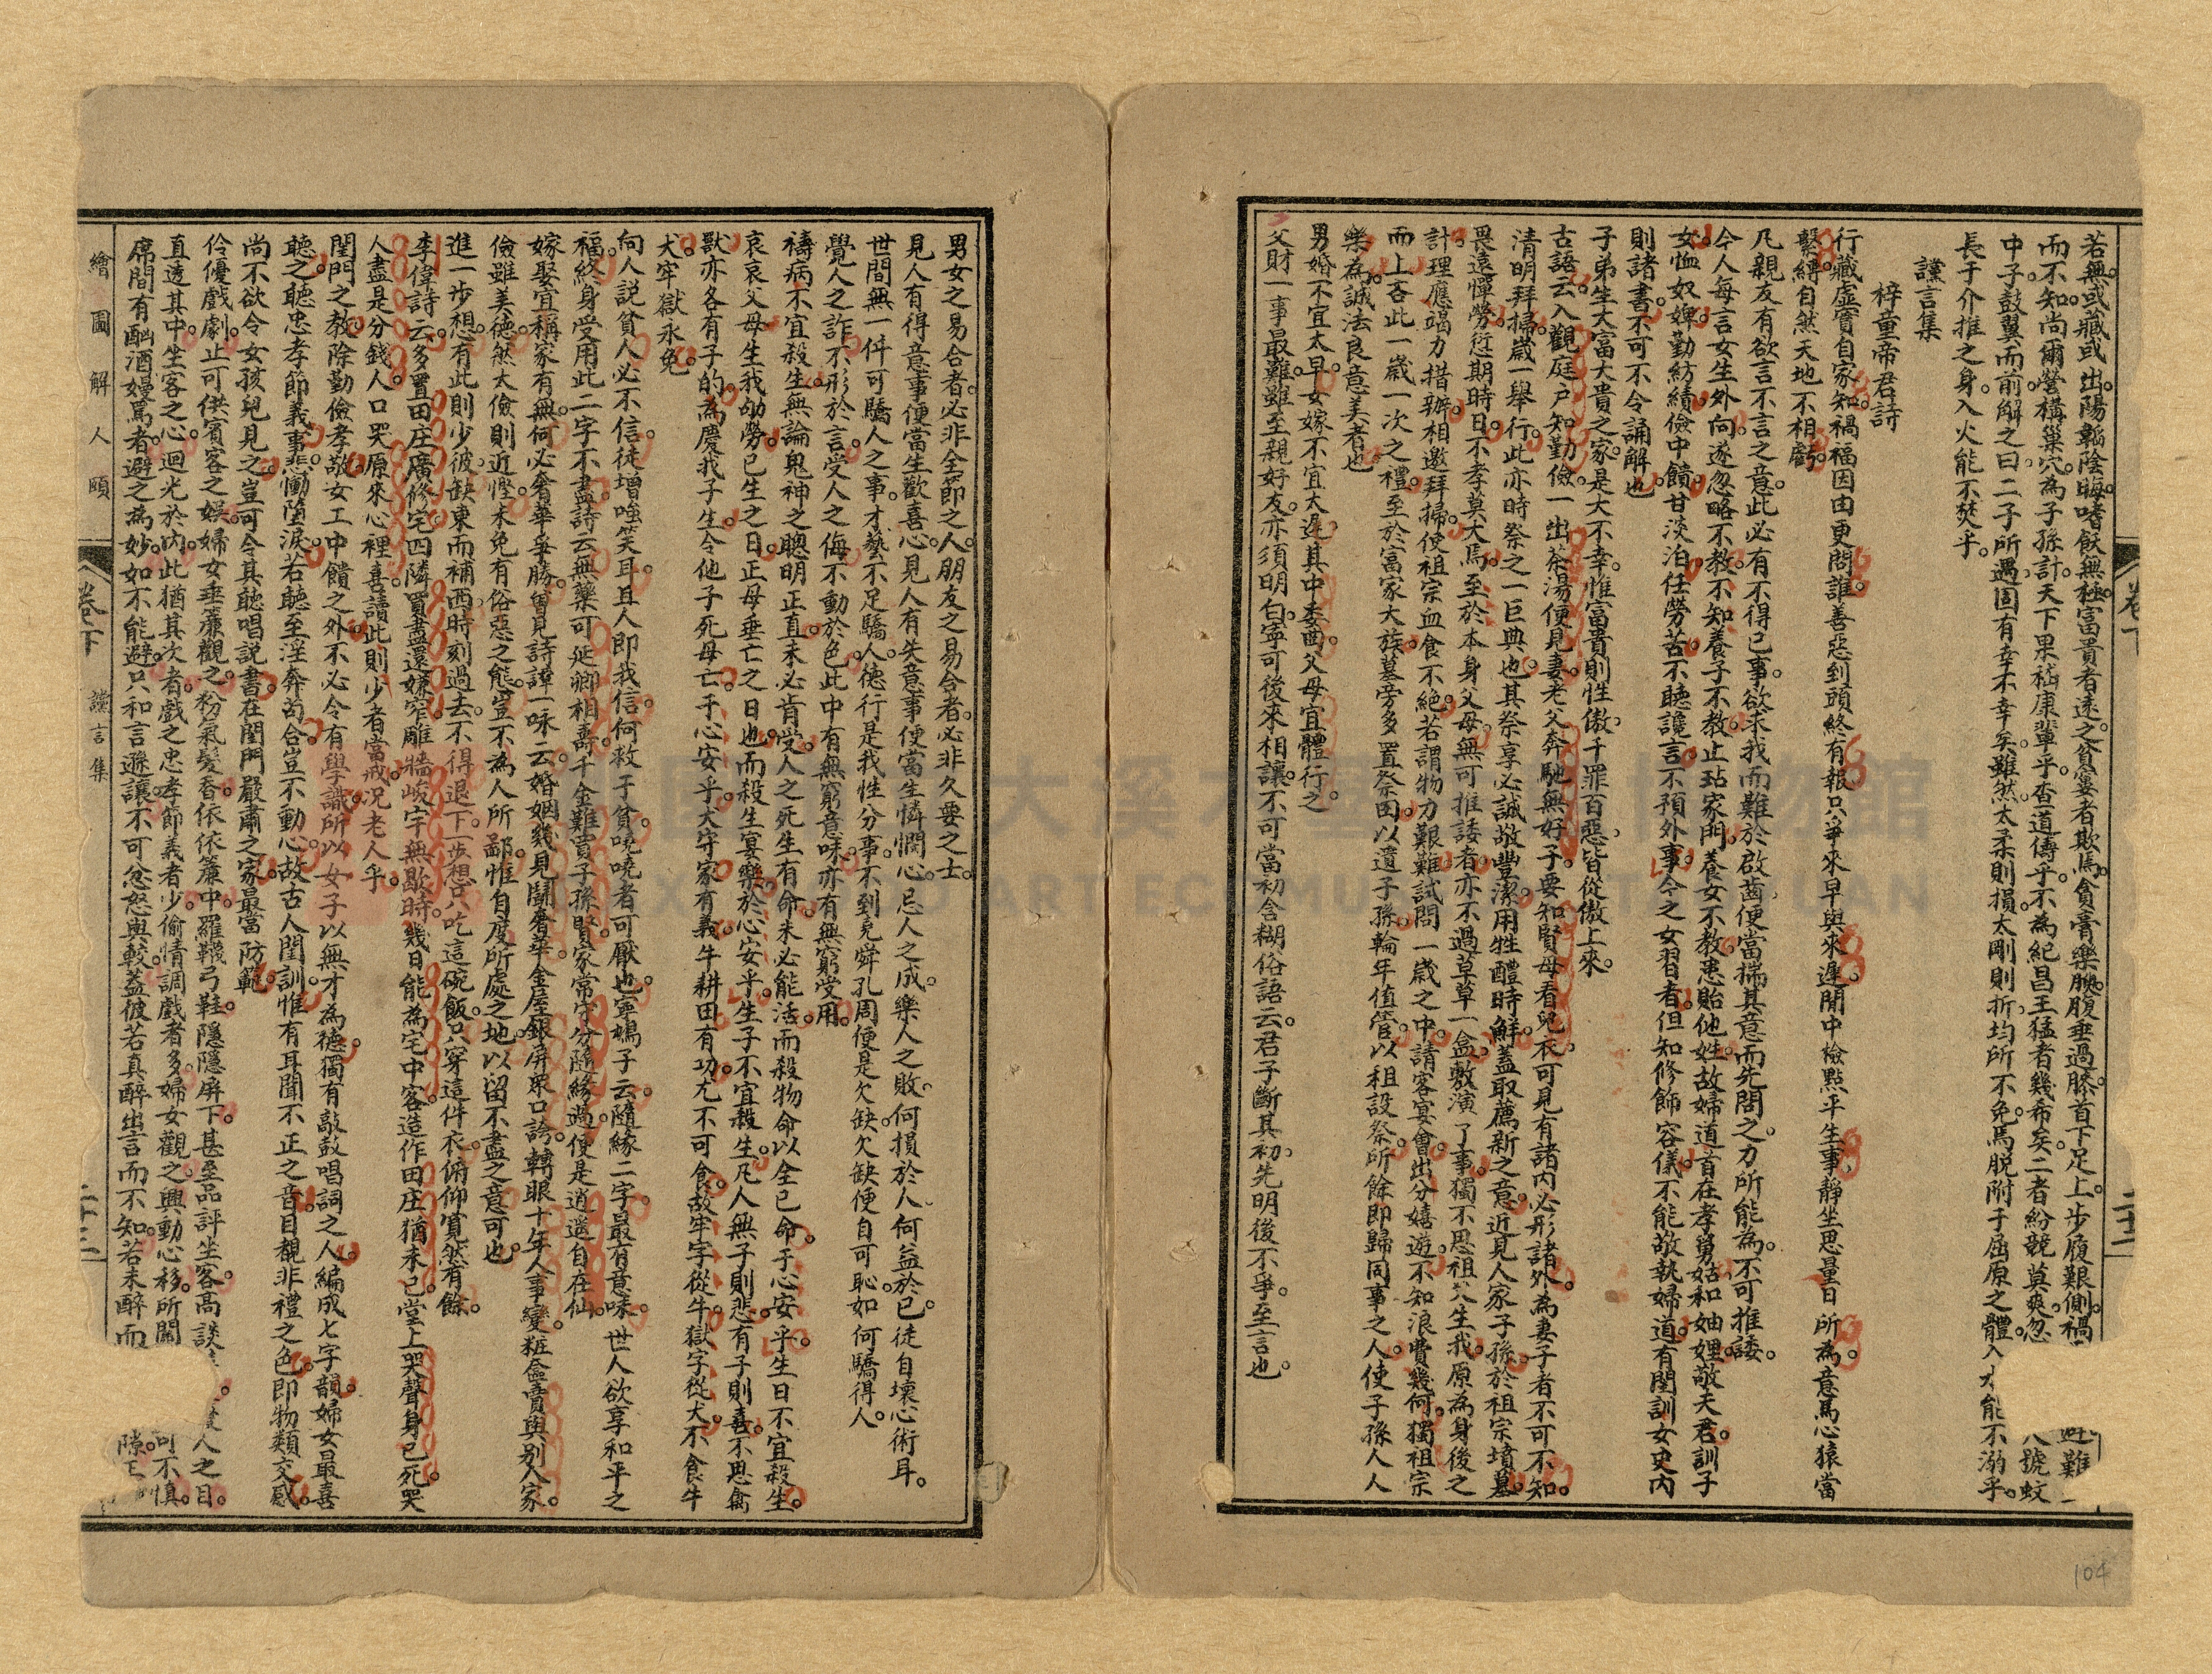 若無。或藏或出。陽韜陰晦。嗜飫無極。富貴者遠。之貧窶者欺焉。貪膏藥腴。腹垂過膝。首下足上。步履艱側。禍
而不知。尚爾營構巢穴。為子孫計。天下果嵇康輩乎。查道儔乎。不為紀昌王猛者幾希矣。二者紛競莫爽。忽
八號蚊
中子。鼓翼而前。解之曰。二子所遇。固有幸不幸矣。雖然太柔則損。太剛則折。均所不免。焉脫附子屈原之體。入水能不溺乎。
長于介推之身。入火能不焚乎。
讜言集
梓童帝君詩
行藏虛實自家知。禍福因由更問誰。善惡到頭終有報。只爭來早與來遲。閒中檢點平生事。靜坐思量日所為。意馬心猿當
繫縛。自然天地不相虧。
凡親友有欲言不言之意。此必有不得已事。欲求我而難於啟齒。便當揣其意而先問之。力所能為。不可推諉。
今人每言女生外向。遂忽略不教。不知養子不教。止玷家門。養女不教。患貽他姓。故婦道首在孝舅姑。和妯娌。敬夫君。訓子
女。恤奴婢。勤紡績。儉中饋。甘淡泊。任勞苦。不聽讒言。不預外事。今之女習者。但知修飾容儀。不能敬執婦道。有閨訓女史內
則諸書。不可不令誦解也。
子弟生大富大貴之家。是大不幸。惟富貴則性傲。千罪百惡。皆從傲上來。
古語云。入觀庭戶知勤儉。一出茶湯便見妻。老父奔馳無好子。要知賢母看兒衣。可見有諸內必形諸外。為妻子者不可不知。
清明拜掃。歲一舉行。此亦時祭之一巨典也。其祭享必誠敬豐潔。用牲醴時鮮。蓋取薦新之意。近見人家子孫於祖宗墳墓。
畏遠憚勞。愆期時日。不孝莫大焉。至於本身父母。無可推諉者。亦不過草草一盒。敷演了事。獨不思祖父生我。原為身後之
計。理應竭力措辦。相邀拜掃。使祖宗血食不絕。若謂物力艱難。試問一歲之中。請客宴會。出分嬉遊。不知浪費幾何。獨祖宗
而上吝此一歲一次之禮。至於富家大族。墓旁多置祭田。以遺子孫。輪年值管。以租設祭。所餘即歸同事之人。使子孫人人
樂為。誠法良意美者也。
男婚不宜太早。女嫁不宜太遲。其中委曲。父母宜體行之。
父財一事最難。雖至親好友。亦須明白。寧可後來相讓。不可當初含糊。俗語云。君子斷其初。先明後不爭。至言也。
男女之易合者。必非全節之人。朋友之易合者。必非久要之士。
見人有得意事。便當生歡喜心。見人有失意事。便當生憐憫心。忌人之成。樂人之敗。何損於人。何益於己。徒自壞心術耳。
世間無一件可驕人之事。才藝不足驕人。德行是我性分事。不到堯舜孔周。便是欠缺。欠缺便自可恥。如何驕得人。
覺人之詐。不形於言。受人之侮。不動於色。此中有無窮意味。亦有無窮受用。
禱病不宜殺生。無論鬼神之聰明正直。未必肯受。人之死生有命。未必能活。而殺物命以全己命。于心安乎。生日不宜殺生。
哀哀父母。生我劬勞。已生之日。正母垂亡之日也。而殺生宴樂。於心安乎。生子不宜殺生。凡人無子則悲。有子則喜。不思禽
獸亦各有子的。為慶我子生。令他子死母亡。于心安乎。犬守家有義。牛耕田有功。尤不可食。故牢字從牛。獄字從犬。不食牛
犬。牢獄永免。
向人說貧人必不信。徒增嗤笑耳。且人即我信。何救于貧。嘵嘵者可厭也。寧鳩子云。隨緣二字。最有意味。世人欲享和平之
福。終身受用此二字不盡。詩云。無藥可延卿相壽。千金難買子孫賢。家常守分隨緣過。便是逍遙自在仙。
嫁娶宜稱家有無。何必奢華爭勝。曾見詩諱一咏云。婚姻幾見鬪奢華。金屋銀屏眾口誇。轉眼十年人事變。粧奩賣與別人家。
儉雖美德。然太儉則近慳。未免有俗惡之態。豈不為人所鄙。惟自度所處之地。以留不盡之意可也。
進一步想。有此則少彼。缺東而補西。時刻過去不得。退下一步想。只吃這碗飯。只穿這件衣。俯仰寬然有餘。
李偉詩云。多置田庄廣修宅。四隣買盡還嫌窄。雕牆峻宇無歇時。幾日能為宅中客。造作田庄猶未已。堂上哭聲身已死。哭
人盡是分錢人。口哭原來心裡喜。讀此則少者當戒。况老人乎。
閨門之教。除勤儉孝敬女工中饋之外。不必令有學識。所以女子以無才為德。獨有敲鼓唱詞之人。編成七字韻。婦女最喜
聽之。聽忠孝節義事。悲慟墮淚。若聽至淫奔苟合。豈不動心。故古人閨訓。惟有耳聞不正之音。目覩非禮之色。即物類交感。
尚不欲令女孩兒見之。豈可令其聽唱說書。在閨門嚴肅之家。最當防範。
伶優戲劇。止可供賓客之娛。婦女垂簾觀之。粉氣髮香。依依簾中。羅韈弓鞋。隱隱屏下。甚至品評坐客。高談 人之目。
直透其中。生客之心。迴光於內。此猶其次者。戲之忠孝節義者少。偷情調戲者多。婦女觀之。興動心移。所關 可不慎。
席間有酗酒嫚罵者。避之為妙。如不能避。只和言遜讓。不可忿怒與較。蓋彼若真醉。出言而不知。若未醉而 隙
繪圖解人頤
卷下
讜言集
二十三
104